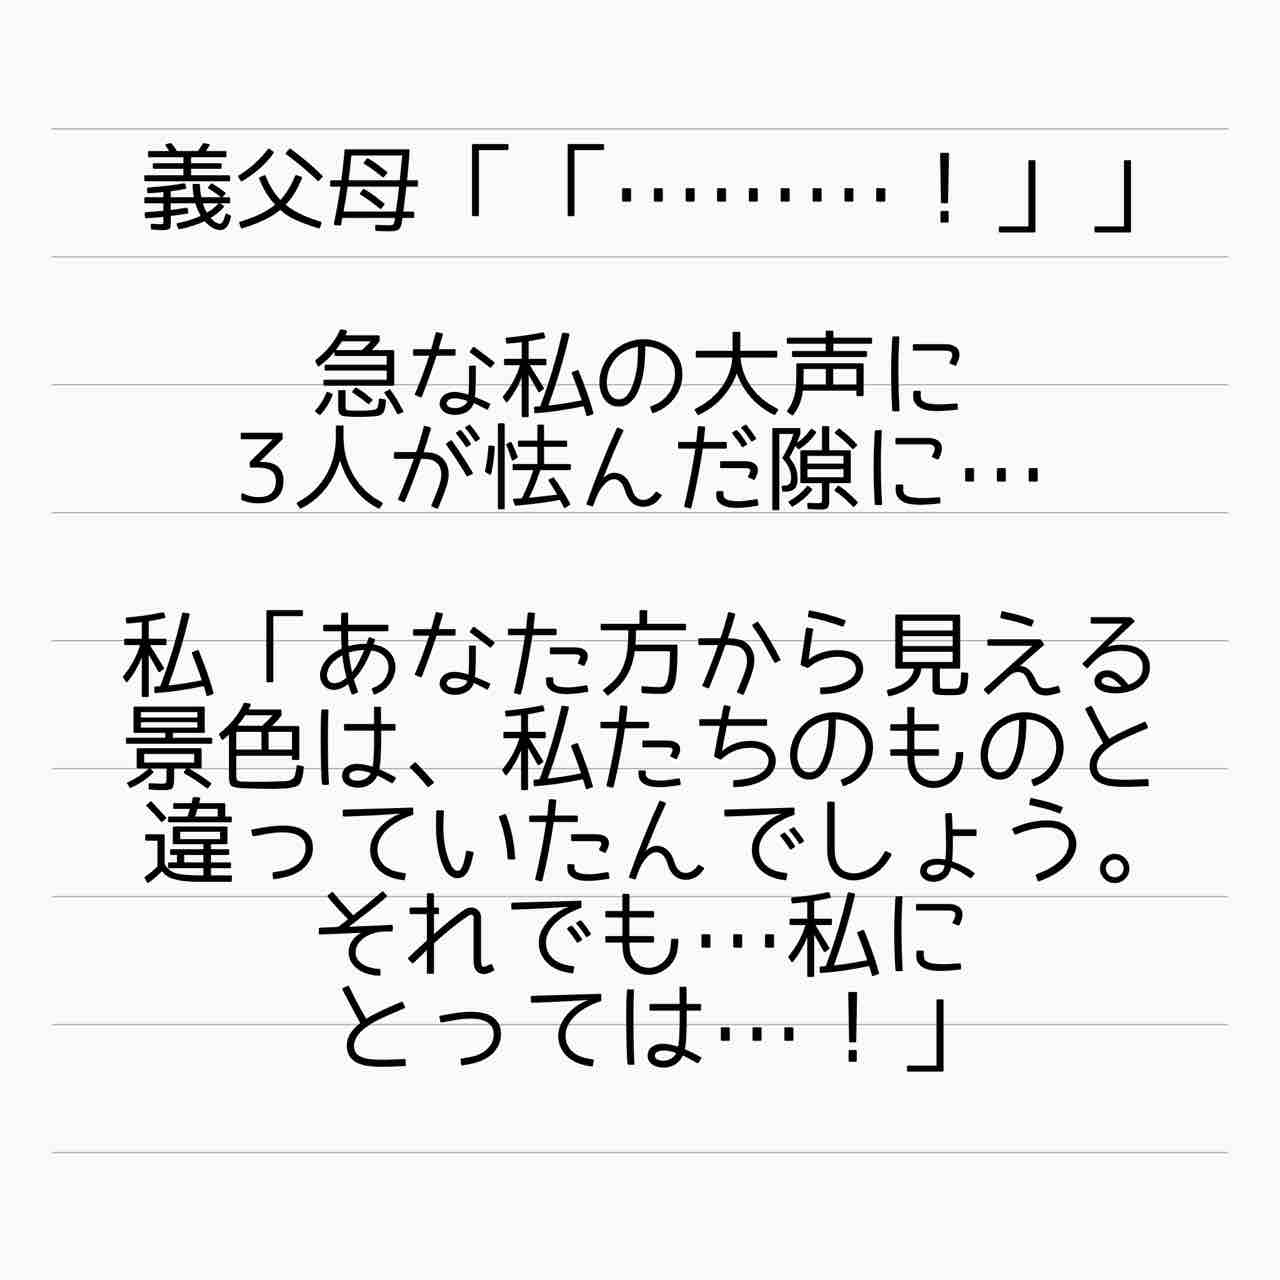 義父母「「………！」」
急な私の大声に
3人が怯んだ隙に…
私「あなた方から見える
景色は、私たちのものと
違っていたんでしょう。
それでも…私に
とっては…！」